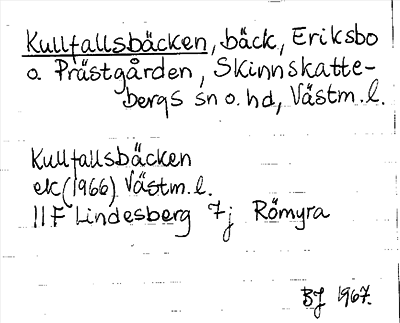 Kullfallsbäcken, bäck, Eriksbo
o. Prästgården, Skinnskatte-
bergs sn o. hd, Västm. l.
Kullfallsbäcken
ek (1966) Västm. l.
11F Lindesberg 7j Römyra
BJ 1967.